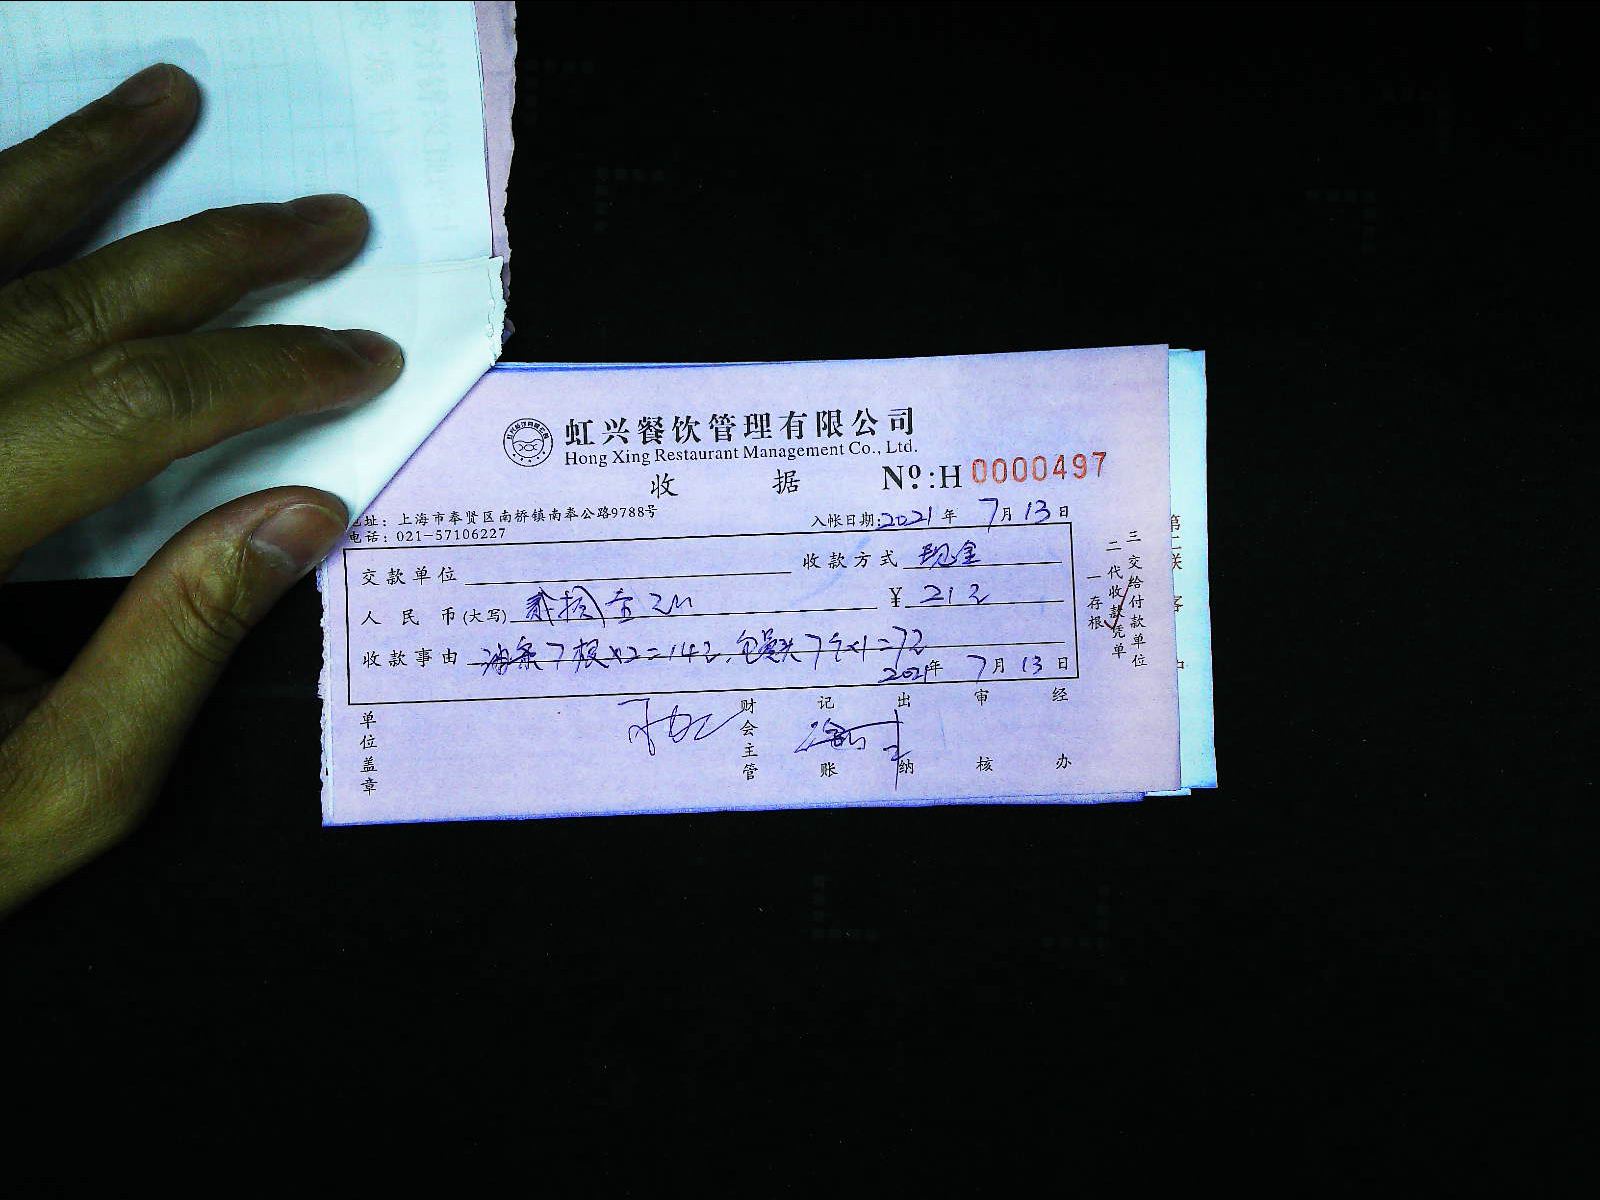 虹兴餐饮管理有限公司
Hong Xing Restaurant Management Co., Ltd.
收 据 Nº:H 0000497
址: 上海市奉贤区南桥镇南奉公路9788号
电话: 021-57106227
入帐日期:2021年 7月 13日
交款单位 收款方式 现金
人民币(大写) 贰拾壹元 ¥ 21元
收款事由 油条7根×2=14元,包馒头7个×1=7元
2021年 7月 13日
单位盖章 财会主管 记账 出纳 审核 经办
一存根
二代收款凭单
三交给付款单位
第二联